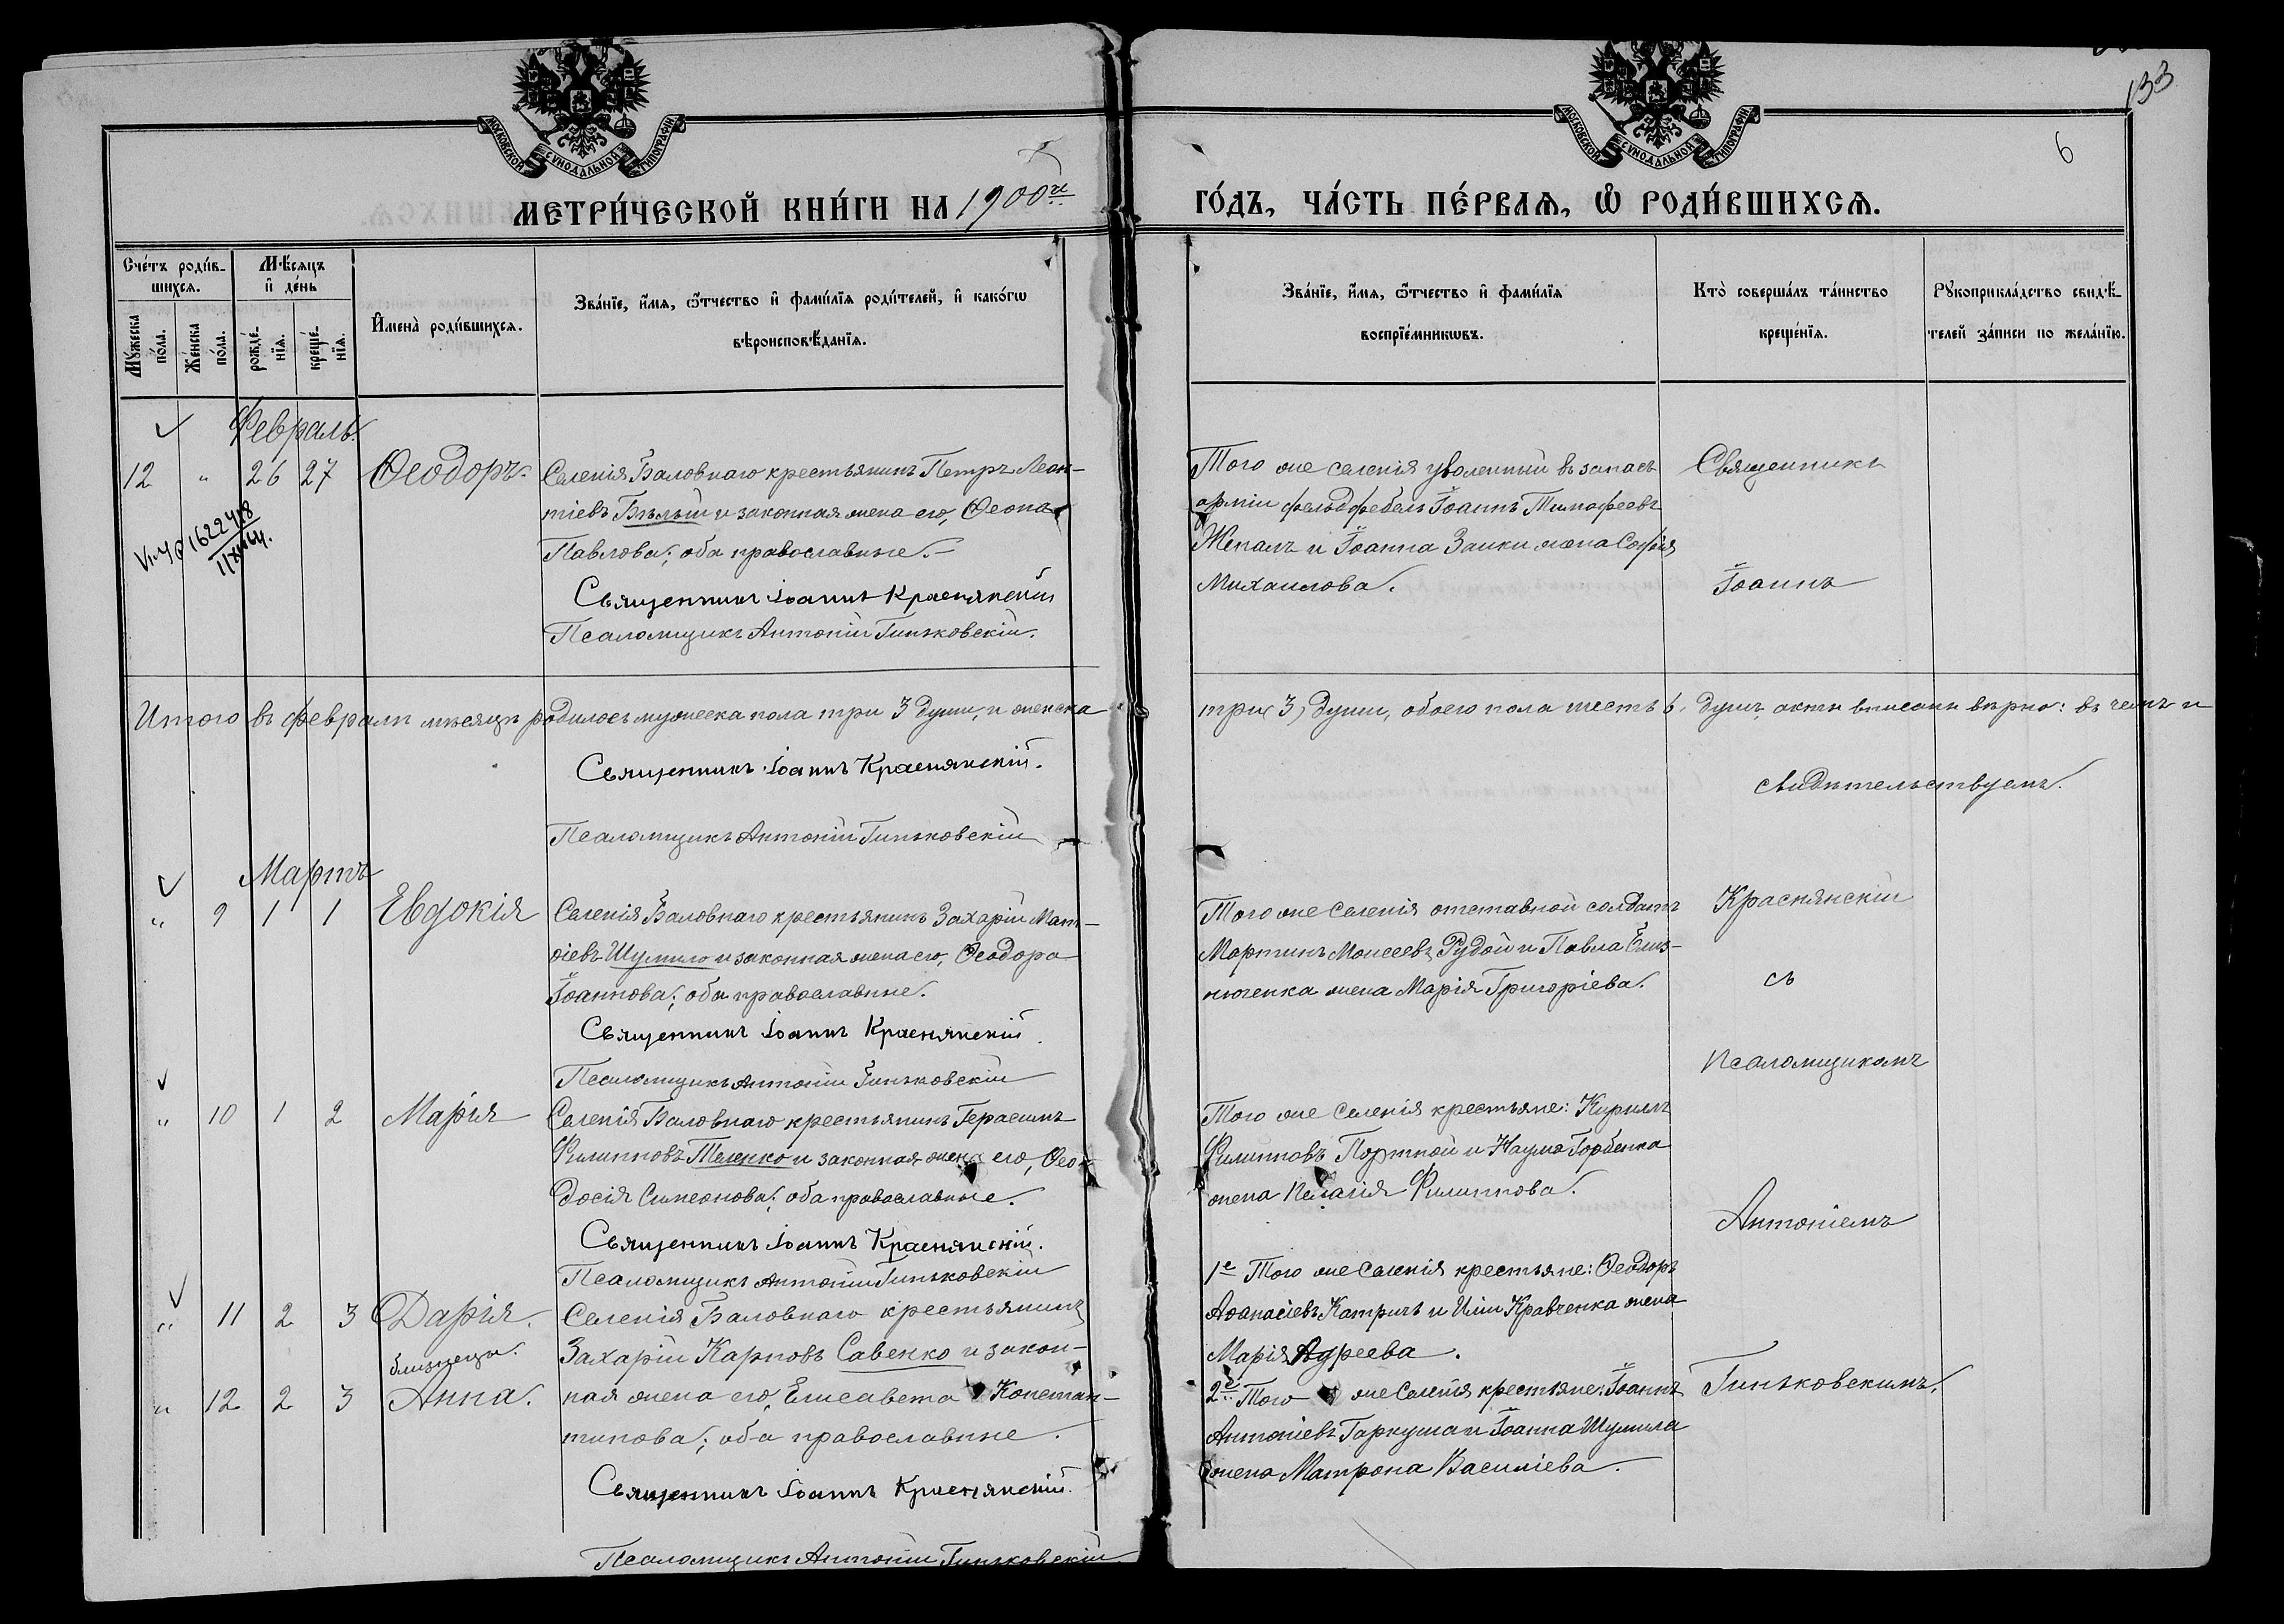 133
6
МОСКОВСКОЙ СУНОДАЛЬНОЙ ТИПОГРАФІИ
МОСКОВСКОЙ СУНОДАЛЬНОЙ ТИПОГРАФІИ
МЕТРИ́ЧЕСКОЙ КНИ́ГИ НА 1900й
ГО́ДЪ, ЧА́СТЬ ПЕ́РВАѦ, Ѡ҆ РОДИ́ВШИХСѦ.
Сче́тъ роди́в-
шихсѧ.
Мꙋ́жеска по́ла.
Же́нска по́ла.
Мѣ́сѧцъ
и҆ де́нь
рожде́-
нїѧ.
креще́-
нїѧ.
И҆мена̀ роди́вшихсѧ.
Зва́нїе, и҆́мѧ, ѻ҆́тчество и҆ фами́лїѧ роди́телей, и҆ како́гѡ
вѣроисповѣ́данїѧ.
Зва́нїе, и҆́мѧ, ѻ҆́тчество и҆ фами́лїѧ
воспрїе́мникѡвъ.
Кто̀ соверша́лъ та́инство
креще́нїѧ.
Рꙋкоприкла́дство свидѣ́-
телей за́писи по жела́нїю.
Февраль.
12 " 26 27 Ѳеодоръ.
Селенія Баловнаго крестьянинъ Петръ Леон-
тіевъ Бѣлый и законная жена его, Ѳеона
Павлова; оба православные.
Священникъ Іоаннъ Краснянскій
Псаломщикъ Антоній Гиньковскій.
Того же селенія уволенный въ запасъ
арміи фельдфебель Іоаннъ Тимофеевъ
Жепалъ и Іоанна Заики жена Софія
Михаилова.
Священникъ
Іоаннъ
Итого въ февралѣ мѣсяцѣ родилось мужеска пола три 3 души, и женска
три (3) души, обоего пола шесть 6. душъ, акты вписаны вѣрно: въ чемъ и
свидѣтельствуемъ.
Священникъ Іоаннъ Краснянскій.
Псаломщикъ Антоній Гиньковскій
Мартъ
" 9 1 1 Евдокія
Селенія Баловнаго крестьянинъ Захарій Мат-
ѳіевъ Шумило и законная жена его, Ѳеодора
Іоаннова; оба православные.
Священникъ Іоаннъ Краснянскій.
Псаломщикъ Антоній Гиньковскій
Того же Селенія отставной солдатъ
Мартинъ Моисеевъ Рудой и Павла
жена Марія Григоріева.
Краснянскій
съ
Псаломщикомъ
" 10 1 2 Марія
Селенія Баловнаго крестьянинъ Герасимъ
Филипповъ Теленко и законная жена его, Ѳео-
досія Симеонова; оба православные.
Священникъ Іоаннъ Краснянскій.
Псаломщикъ Антоній Гиньковскій
Того же Селенія крестьяне: Кириллъ
Филипповъ Портной и Наума Горбенка
жена Пелагія Филиппова.
Антоніемъ
" 11 2 3 Дарія.
близнецы.
" 12 2 3 Анна.
Селенія Баловнаго крестьянинъ
Захарій Карповъ Савенко и закон-
ная жена его, Елисавета Констан-
тинова; оба православные.
Священникъ Іоаннъ Краснянскій.
Псаломщикъ Антоній Гиньковскій
1е Того же Селенія крестьяне: Ѳеодоръ
Аѳанасіевъ Катричъ и Иліи Кравченка жена
Марія Адреева.
2е Того же Селенія крестьяне: Іоаннъ
Антоніевъ Гаркуша и Іоанна Шумила
жена Матрона Василіева.
Гиньковскимъ.